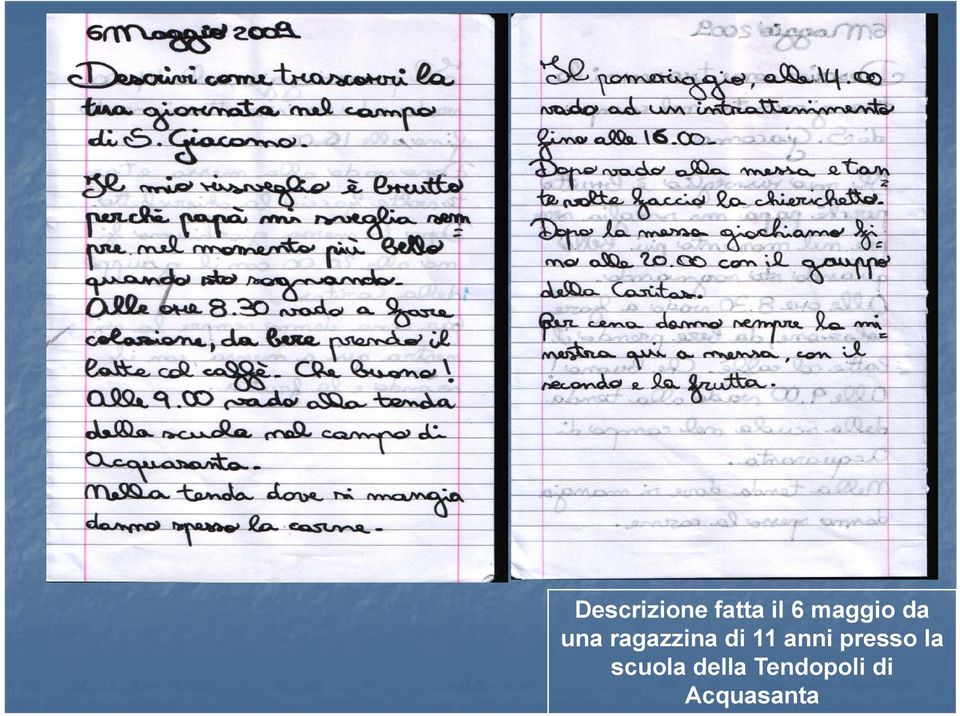 6 Maggio 2009
Descrivi come trascorri la
tua giornata nel campo
di S. Giacomo.
Il mio risveglio è brutto
perchè papà mi sveglia sem
pre nel momento più bello
quando sto sognando.
Alle ore 8.30 vado a fare
colazione, da bere prendo il
latte col caffè. Che buono!
Alle 9.00 vado alla tenda
della scuola nel campo di
Acquasanta.
Nella tenda dove si mangia
danno spesso la carne.
Il pomeriggio, alle 14.00
vado ad un intrattenimento
fino alle 16.00.
Dopo vado alla messa e tan
te volte faccio la chierichetta.
Dopo la messa giochiamo fi
no alle 20.00 con il gruppo
della Caritas.
Per cena danno sempre la mi
nestra qui a mensa, con il
secondo e la frutta.
Descrizione fatta il 6 maggio da
una ragazzina di 11 anni presso la
scuola della Tendopoli di
Acquasanta